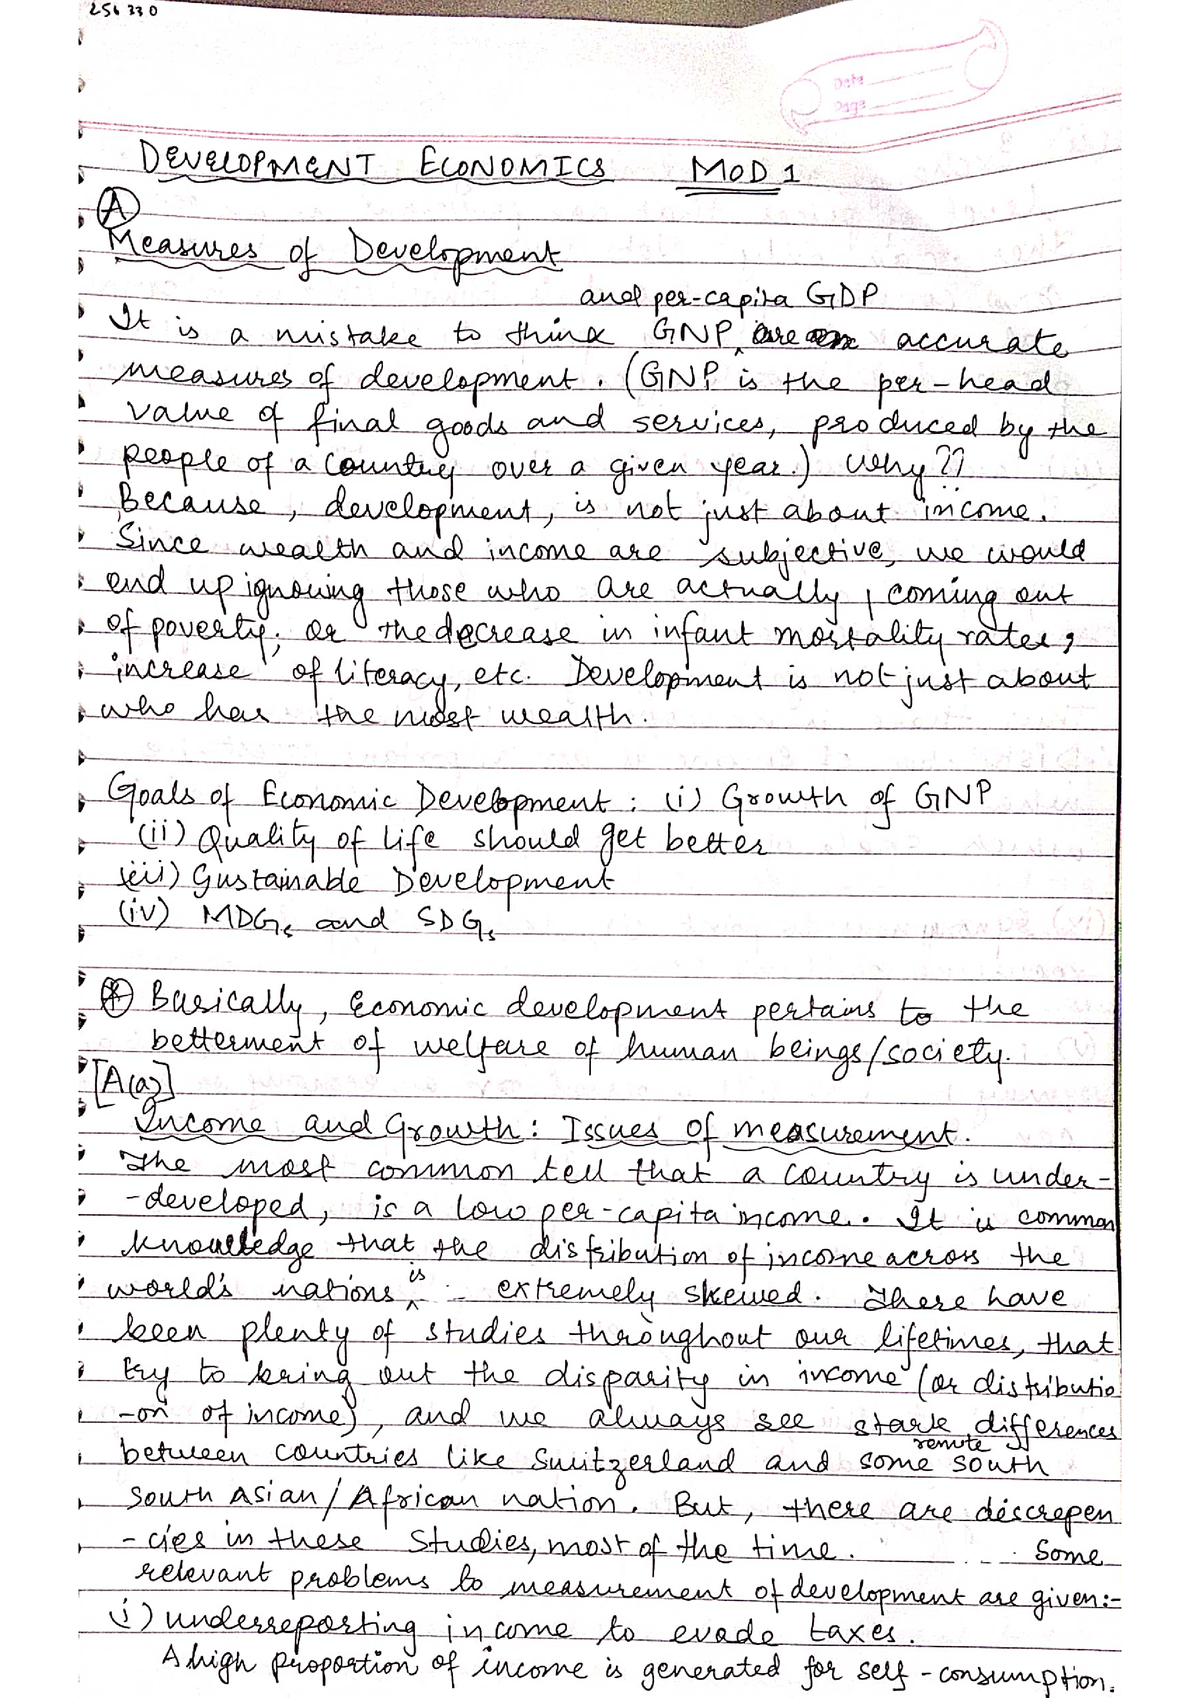 256 330
Date
Page
DEVELOPMENT ECONOMICS MOD 1
A
Measures of Development
and per-capita GDP
It is a mistake to think GNP ^ are accurate
measures of development. (GNP is the per-head
value of final goods and services, produced by the
people of a country over a given year.) Why??
Because, development, is not just about income.
Since wealth and income are subjective, we would
end up ignoring those who are actually, coming out
of poverty; or the decrease in infant mortality rates,
increase of literacy, etc. Development is not just about
who has the most wealth.
Goals of Economic Development: (i) Growth of GNP
(ii) Quality of life should get better
(iii) Sustainable Development
(iv) MDGs and SDGs
Basically, Economic development pertains to the
betterment of welfare of human beings/society.
[A(a)]
Income and Growth: Issues of measurement.
The most common tell that a country is under-
-developed, is a low per-capita income. It is common
knowledge that the distribution of income across the
is
world's nations ^ extremely skewed. There have
been plenty of studies throughout our lifetimes, that
try to bring out the disparity in income (or distributio
-on of income), and we always see stark differences
remote
between countries like Switzerland and some south
south Asian/African nation. But, there are discrepen
-cies in these studies, most of the time. Some
relevant problems to measurement of development are given:-
(i) underreporting income to evade taxes.
A high proportion of income is generated for self-consumption.